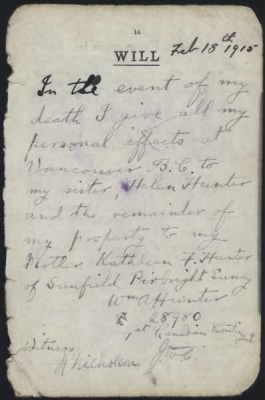 14
WILL
Feb 18th 1915
In the event of my
death I give all my
personal effects at
Vancouver B.C. to
my sister, Helen Hunter
and the remainder of
my property to my
Mother Kathleen F. Hunter
of Sunfield Pirbright Surrey
Wm A Hunter
28980
1st Canadian Contingent
Witness
A Nicholson